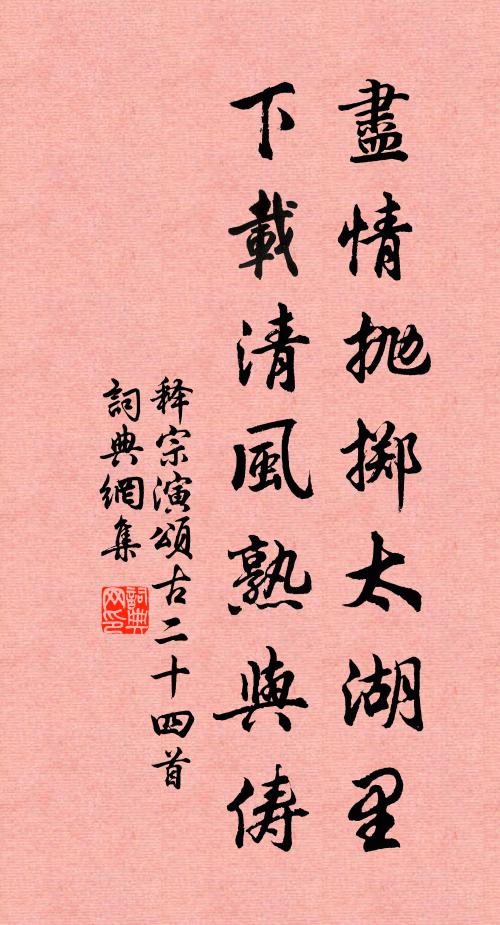 盡情抛擲太湖里
下載清風熟與儔
释宗演頌古二十四首
詞典網集
詞典网印